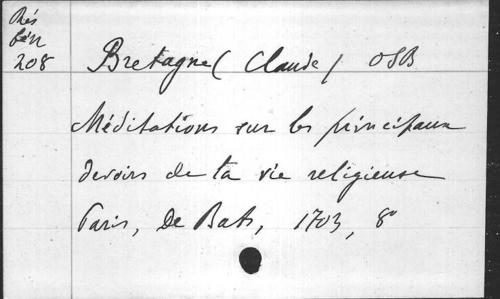 Rés
bén
208
Bretagne (Claude) OSB
Méditations sur les principaux
devoirs de la vie religieuse
Paris, De Bats, 1703, 8°